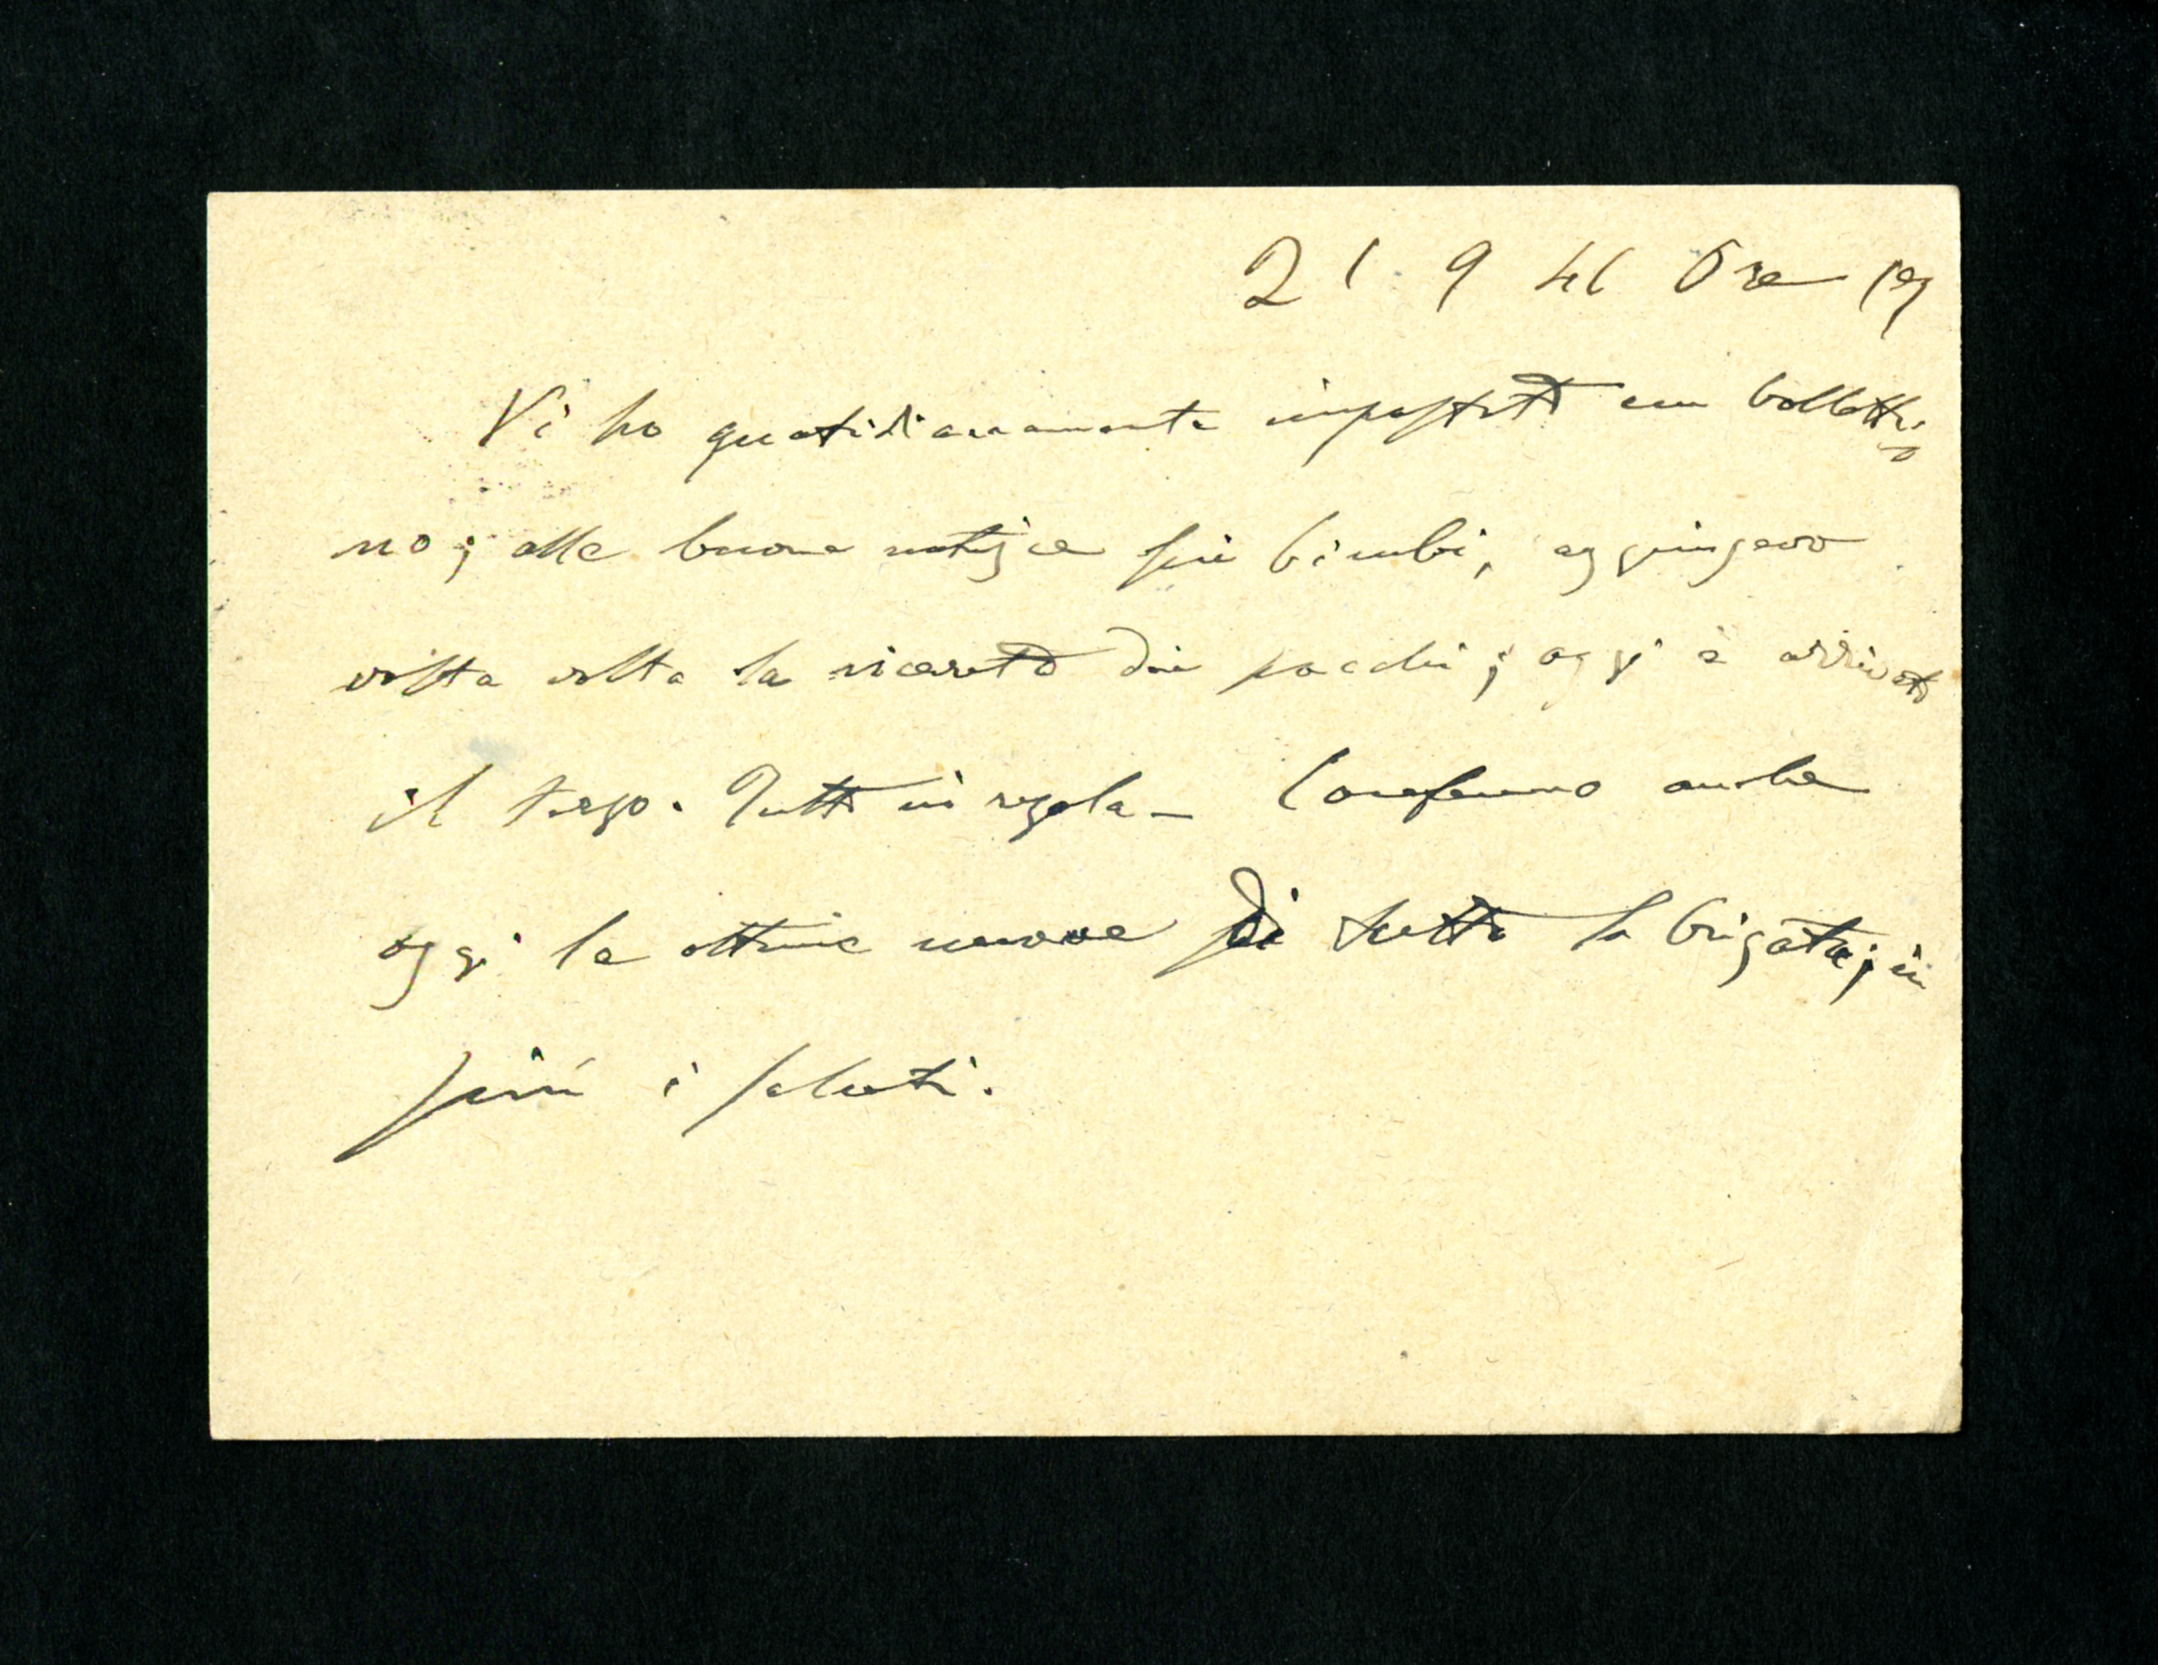 21 9 41 Ore 19
Vi ho quotidianamente impostato un bolletti=
no; alle buone notizie sui bimbi, aggiungevo
volta volta la ricevuta dei pacchi; oggi è arrivato
il terzo. Tutto in regola - Confermo anche
oggi le ottime nuove di tutta la brigata;
i saluti.